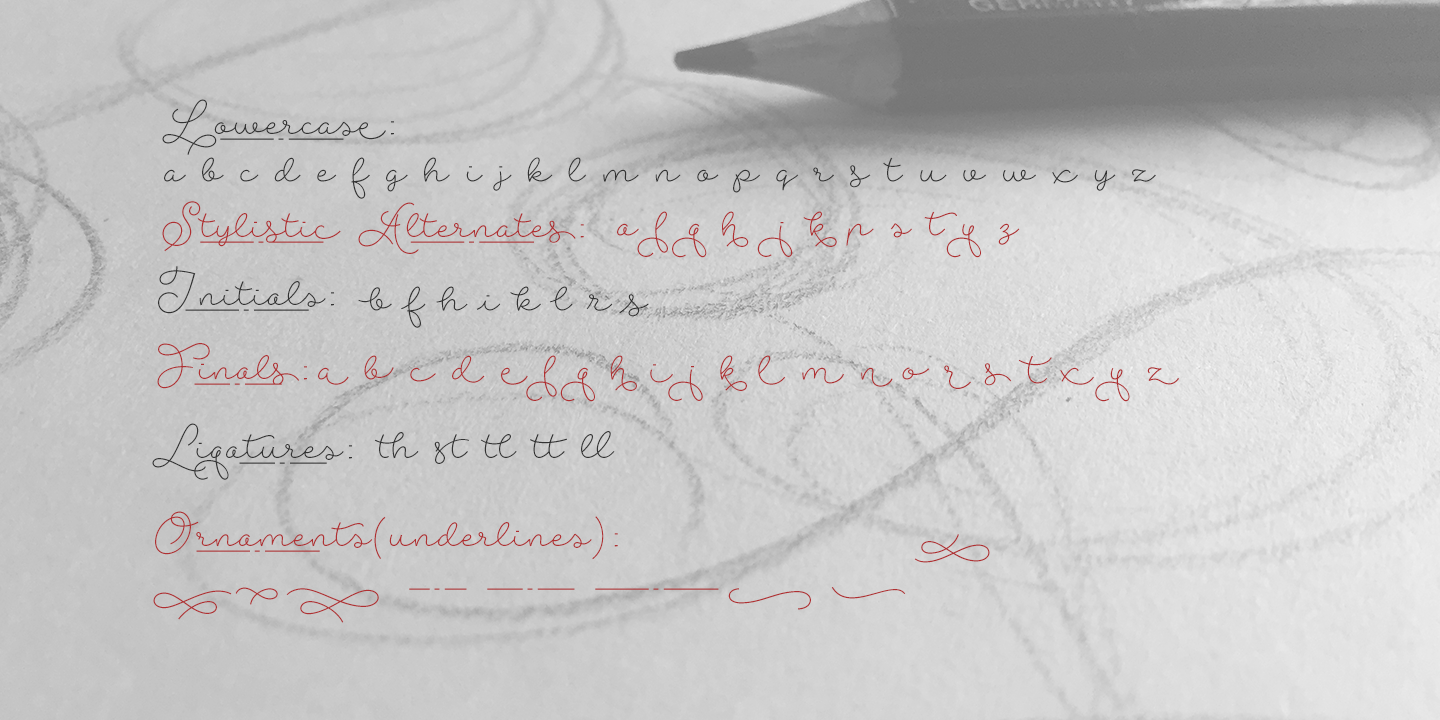 GERMANY
Lowercase:
a b c d e f g h i j k l m n o p q r s t u v w x y z
Stylistic Alternates: a f g h j k p s t y z
Initials: b f h i k l r s
Finals: a b c d e f g h i j k l m n o r s t x y z
Ligatures: th st tl tt ll
Ornaments(underlines):